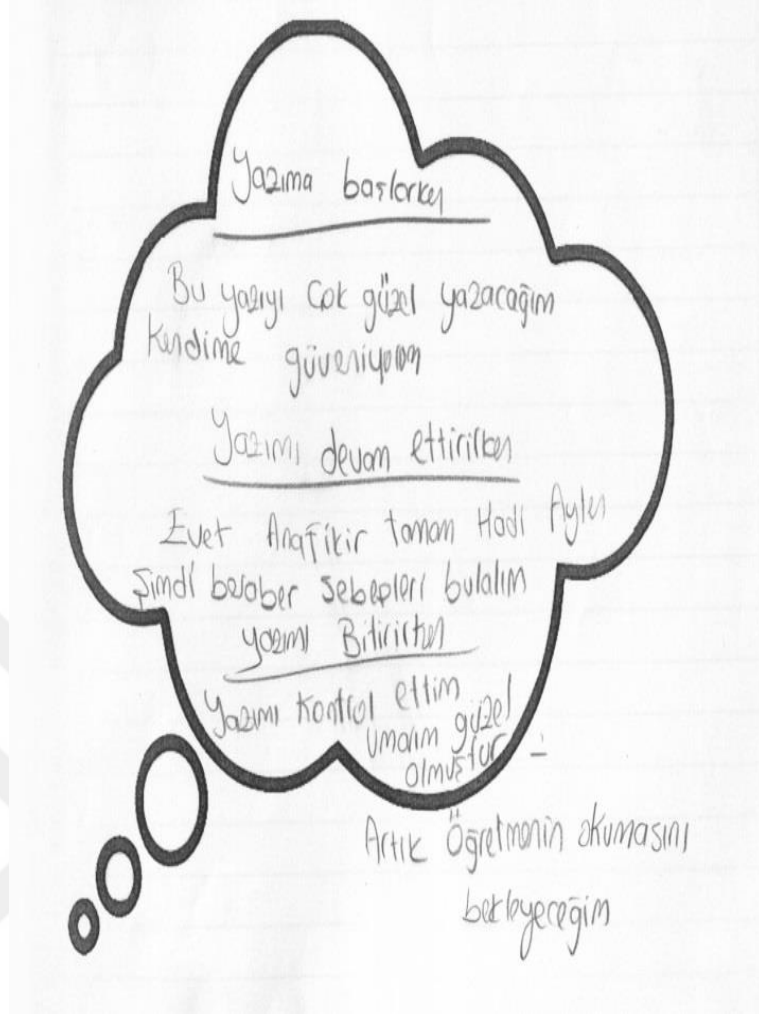 Yazıma başlarken
Bu yazıyı Çok güzel yazacağım
Kendime güveniyorum
Yazımı devam ettirirken
Evet Anafikir tamam Hadi Aylin
Şimdi beraber sebepleri bulalım
yazımı Bitirirken
Yazımı Kontrol ettim
Umarım güzel
olmuştur
Artık Öğretmenin okumasını
bekleyeceğim